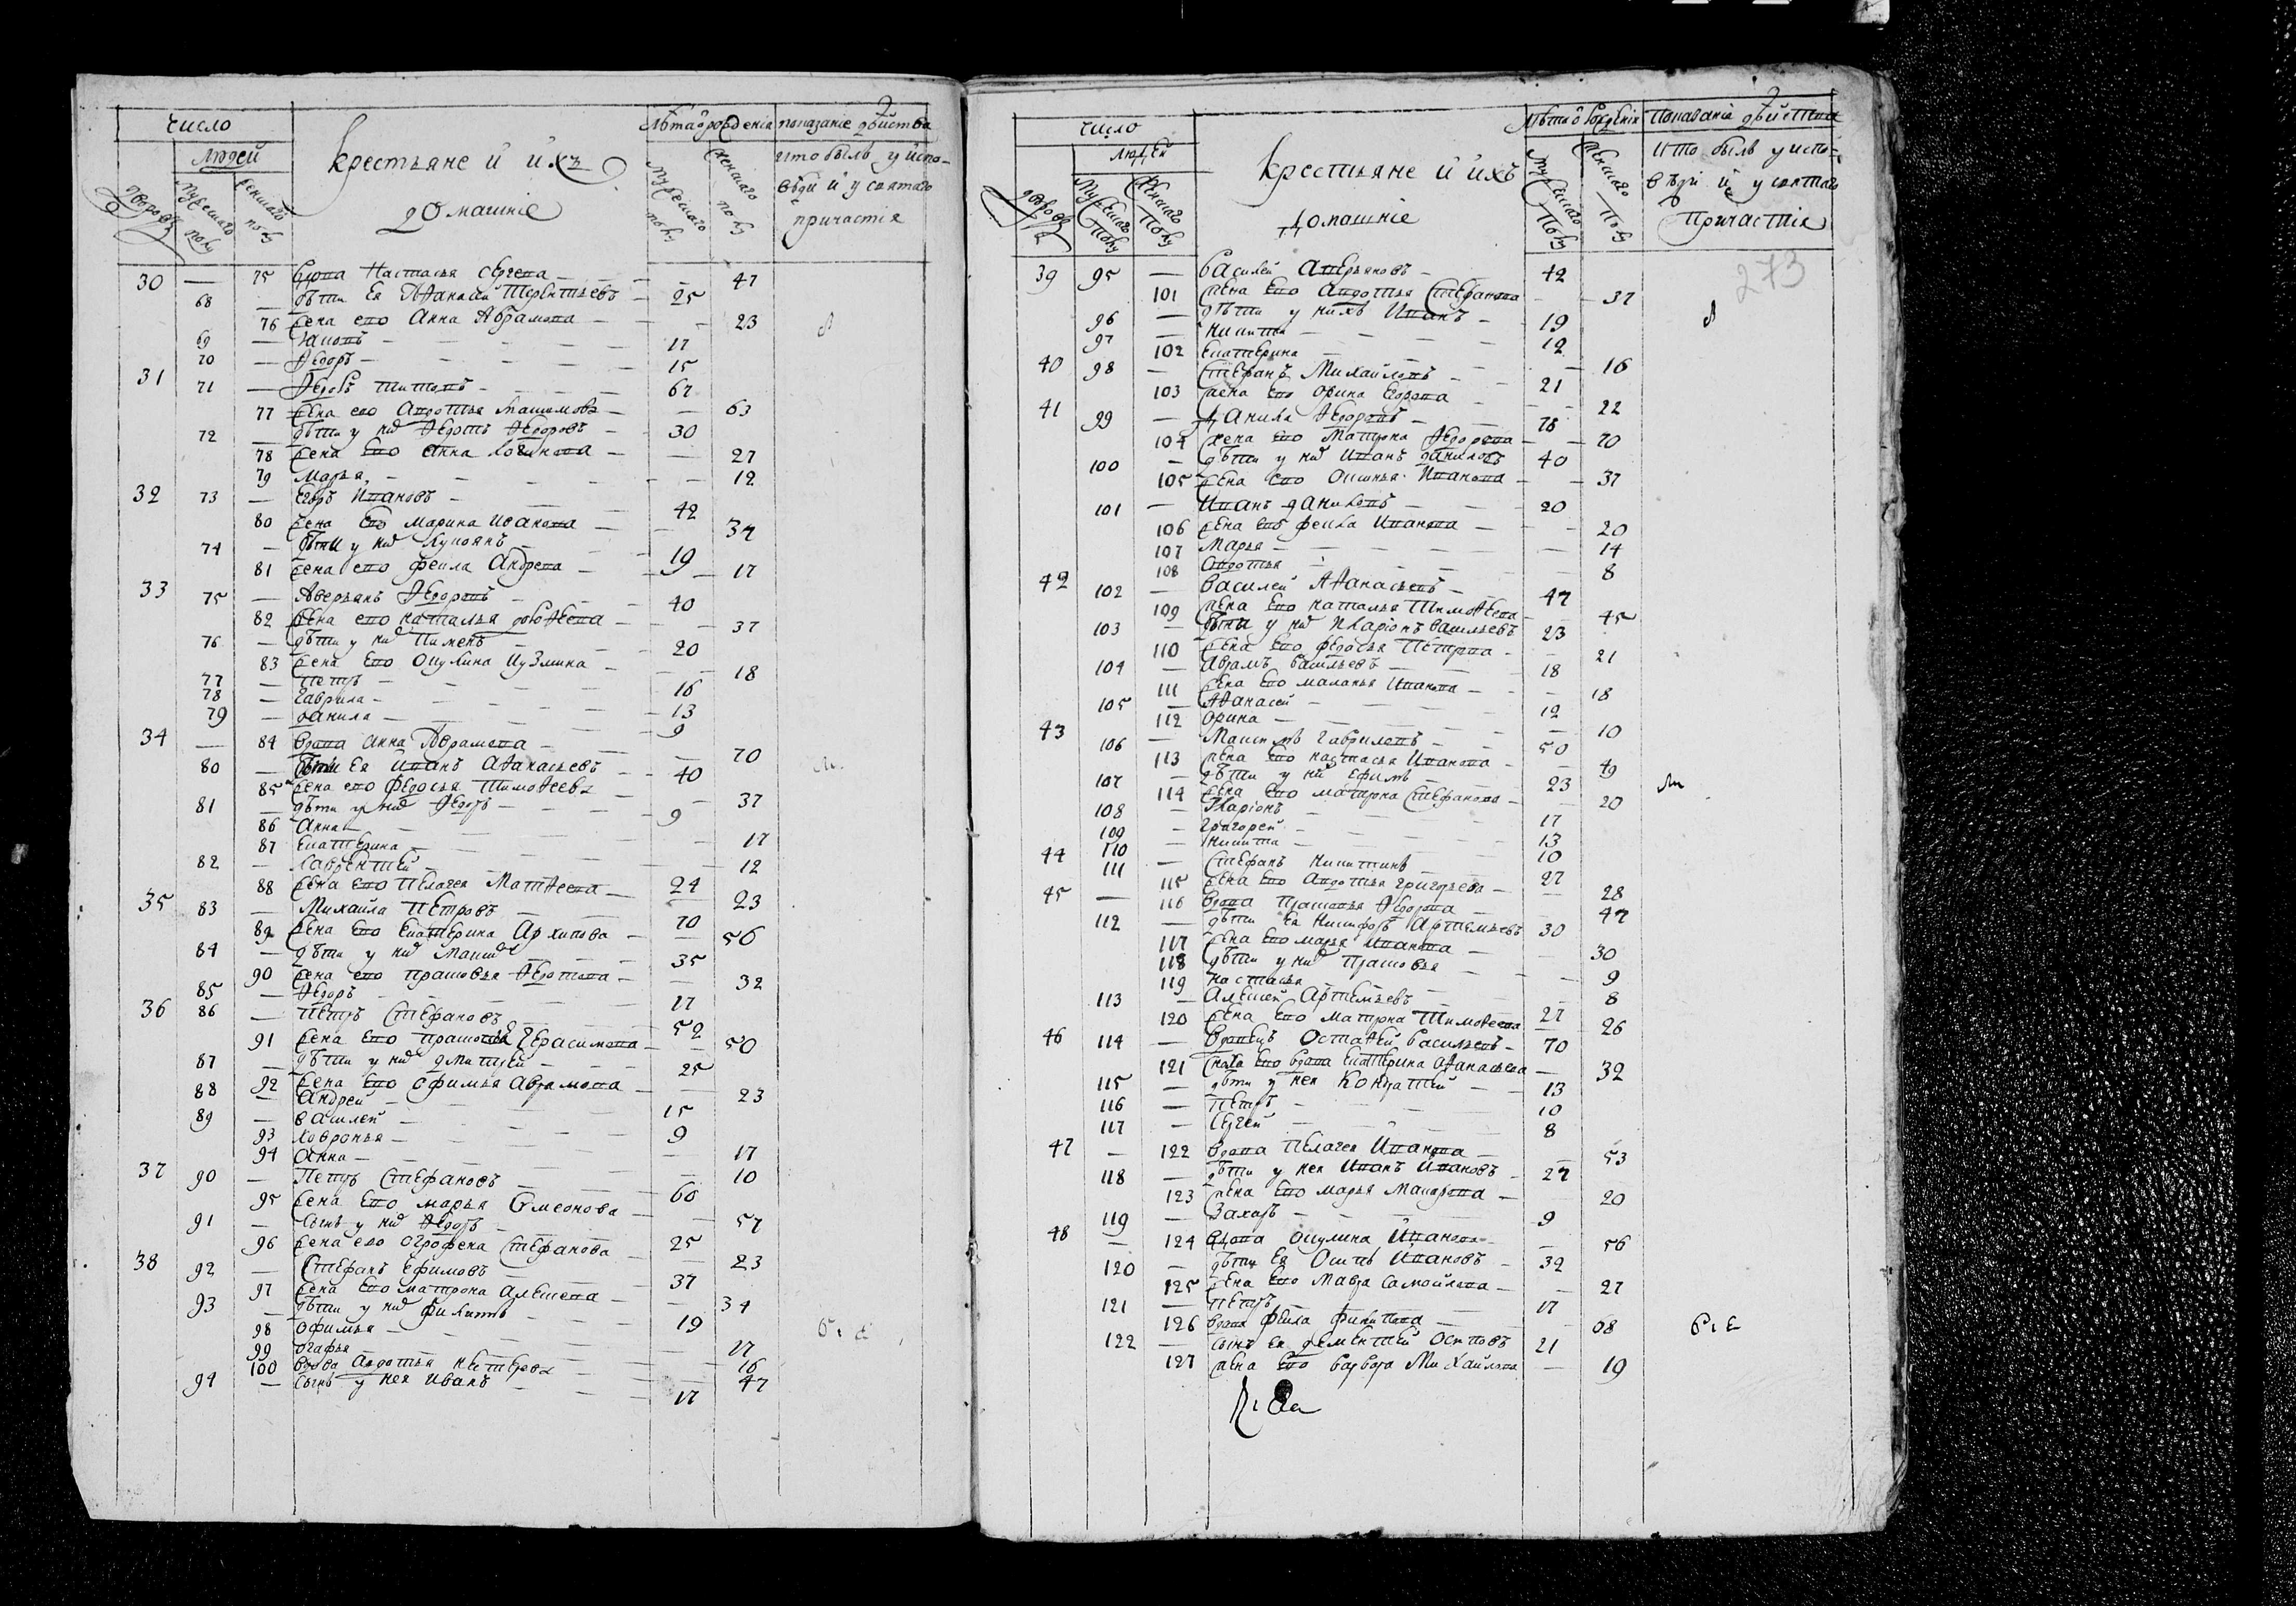 число
людей
дворовъ
мужеска полу
женска полу
крестьяне и ихъ
домашніе
лѣта от рожденія
мужеска полу
женска полу
показаніе дѣйства
кто былъ у испо-
вѣди и у святаго
причастія
30 — 75 вдова Настасья Сергеева — 47
68 — дѣти ея Аѳанасей Терентьевъ — 25
76 жена его Анна Абрамова — 23
69 — Іаковъ — 17
70 — Ѳедоръ — 15
31 71 — Ѳедоръ Титовъ — 67
77 жена его Авдотья Максимова — 63
72 — дѣти у них Ѳедотъ Ѳедоровъ — 30
78 жена его Анна Логинова — 27
79 Марья — 12
32 73 — Егоръ Ивановъ — 42
80 жена его Марина Иванова — 34
74 — дѣти у них Лукоянъ — 19
81 жена его Фекла Андреева — 17
33 75 — Аверьянъ Ѳедоровъ — 40
82 жена его Наталья Доѳеева — 37
76 — дѣти у них Пименъ — 20
83 жена его Окулина Кузмина — 18
77 — Петръ — 16
78 — Гаврила — 13
79 — Данила — 9
34 — 84 вдова Анна Абрамова — 70
80 — дѣти ея Иванъ Аѳанасьевъ — 40
85 жена его Федосья Тимоѳеева — 37
81 — дѣти у них Ѳедоръ — 9
86 Анна — 17
87 Екатерина — 12
82 — Лаврентей — 24
88 жена его Пелагея Матвеева — 23
35 83 — Михайла Петровъ — 70
89 жена его Екатерина Архипова — 56
84 — дѣти у них Максимъ — 35
90 жена его Прасковья Ѳедотова — 32
85 — Ѳедоръ — 17
36 86 — Петръ Стефановъ — 52
91 жена его Прасковья Герасимова — 50
87 — дѣти у них Дмитрей — 25
92 жена его Офимья Аврамова — 23
88 — Андрей — 15
89 — Василей — 9
93 Ховронья — 17
94 Анна — 10
37 90 — Петръ Стефановъ — 60
95 жена его Марья Симеонова — 57
91 — сынъ у них Ѳедоръ — 25
96 жена его Огрофена Стефанова — 23
38 92 — Стефанъ Ефимовъ — 37
97 жена его Матрона Алексеева — 34
93 — дѣти у них Филипъ — 19
98 Офимья — 17
99 Огафья — 16
100 вдова Авдотья — 47
94 — сынъ у нея Иванъ — 17
число
людей
дворовъ
мужеска полу
женска полу
крестьяне и ихъ
домашніе
лѣта от рожденія
мужеска полу
женска полу
показаніе дѣйства
кто былъ у испо-
вѣди и у святаго
причастія
273
39 95 — Василей Аверьяновъ — 42
101 жена его Авдотья Стефанова — 37
96 — дѣти у нихъ Иванъ — 19
97 — Никита — 12
102 Екатерина — 16
40 98 — Стефанъ Михайловъ — 21
103 жена его Орина Егорова — 22
41 99 — Данила Ѳедоровъ — 78
104 жена его Матрона Ѳедорова — 70
100 — дѣти у них Иванъ Даниловъ — 40
105 жена его Оксинья Иванова — 37
101 — Иванъ Даниловъ — 20
106 жена его Фекла Иванова — 20
107 Марья — 14
108 Авдотья — 8
42 102 — Василей Аѳанасьевъ — 47
109 жена его Наталья Тимоѳеева — 45
103 — дѣти у них Иларіонъ Васильевъ 23
110 жена его Федосья Петрова — 21
104 — Абрамъ Васильевъ — 18
111 жена его Маланья Иванова — 18
105 — Аѳанасей — 12
112 Орина — 10
43 106 — Максимъ Гавриловъ — 50
113 жена его Настасья Иванова — 49
107 — дѣти у них Ефимъ — 23
114 жена его Матрона Стефанова — 20
108 — Иларіонъ — 17
109 — Григорей — 13
110 — Никита — 10
44 111 — Стефанъ Никитинъ — 27
115 жена его Авдотья Григорьева — 28
45 — 116 вдова Прасковья Ѳедорова — 47
112 — дѣти ея Никифоръ Артемьевъ 30
117 жена его Марья Иванова — 30
118 дѣти у них Прасковья — 9
119 Настасья — 8
113 — Алексей Артемьевъ — 27
120 жена его Матрона Тимоѳеева — 26
46 114 — вдовецъ Остаѳей Васильевъ — 70
121 сноха его вдова Екатерина Аѳанасьева — 32
115 — дѣти у нея Кондратей — 13
116 — Петръ — 10
117 — Сергей — 8
47 — 122 вдова Пелагея Иванова — 53
118 — дѣти у нея Иванъ Ивановъ — 27
123 жена его Марья Макарова — 20
119 — Захаръ — 9
48 — 124 вдова Окулина Иванова — 56
120 — дѣти ея Осипъ Ивановъ — 32
125 жена его Мавра Самойлова — 27
121 — Петръ — 17
126 вдова Фекла Филипова — 08
122 — сынъ ея Дементей Осиповъ 21
127 жена его Варвара Михайлова — 19